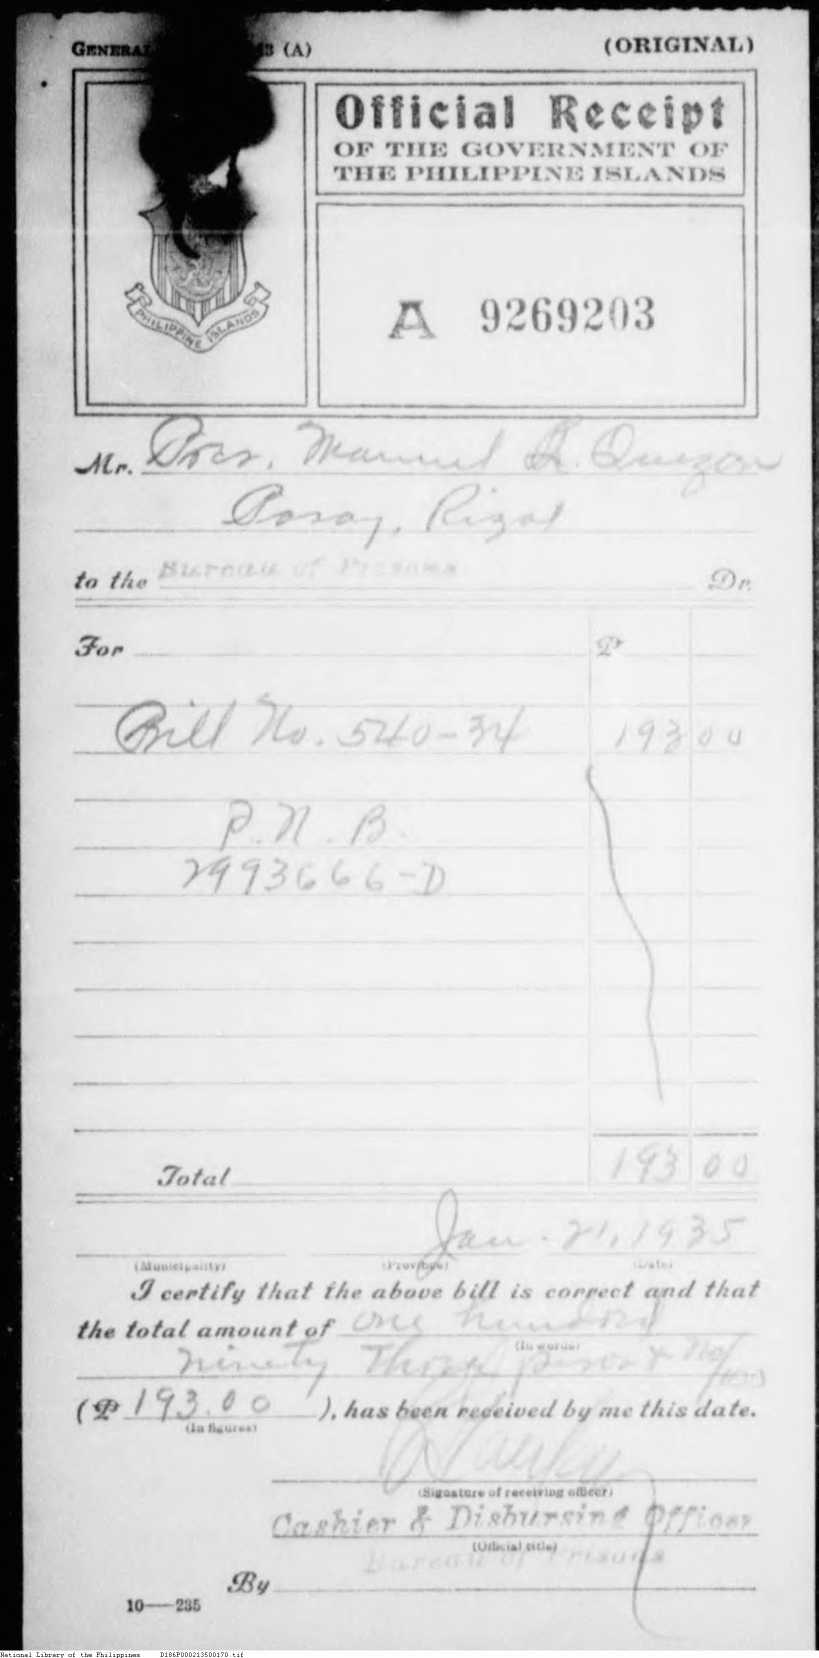 GENERAL (A)
(ORIGINAL)
Official Receipt
OF THE GOVERNMENT OF
THE PHILIPPINE ISLANDS
PHILIPPINE ISLANDS
A 9269203
Mr. Pres. Manuel L. Quezon
Pasay, Rizal
to the Bureau of Prisons Dr.
For ₱
Bill No. 540-34 193 00
P. N. B.
2993666-D
Total 193 00
Jan. 21, 1935
(Municipality) (Province) (Date)
I certify that the above bill is correct and that
the total amount of one hundred
(In words)
ninety Three pesos & No/100
(₱ 193.00 ), has been received by me this date.
(In figures)
(Signature of receiving officer)
Cashier & Disbursing Officer
(Official title)
Bureau of Prisons
By
10—235
National Library of the Philippines D186P000213500170.tif